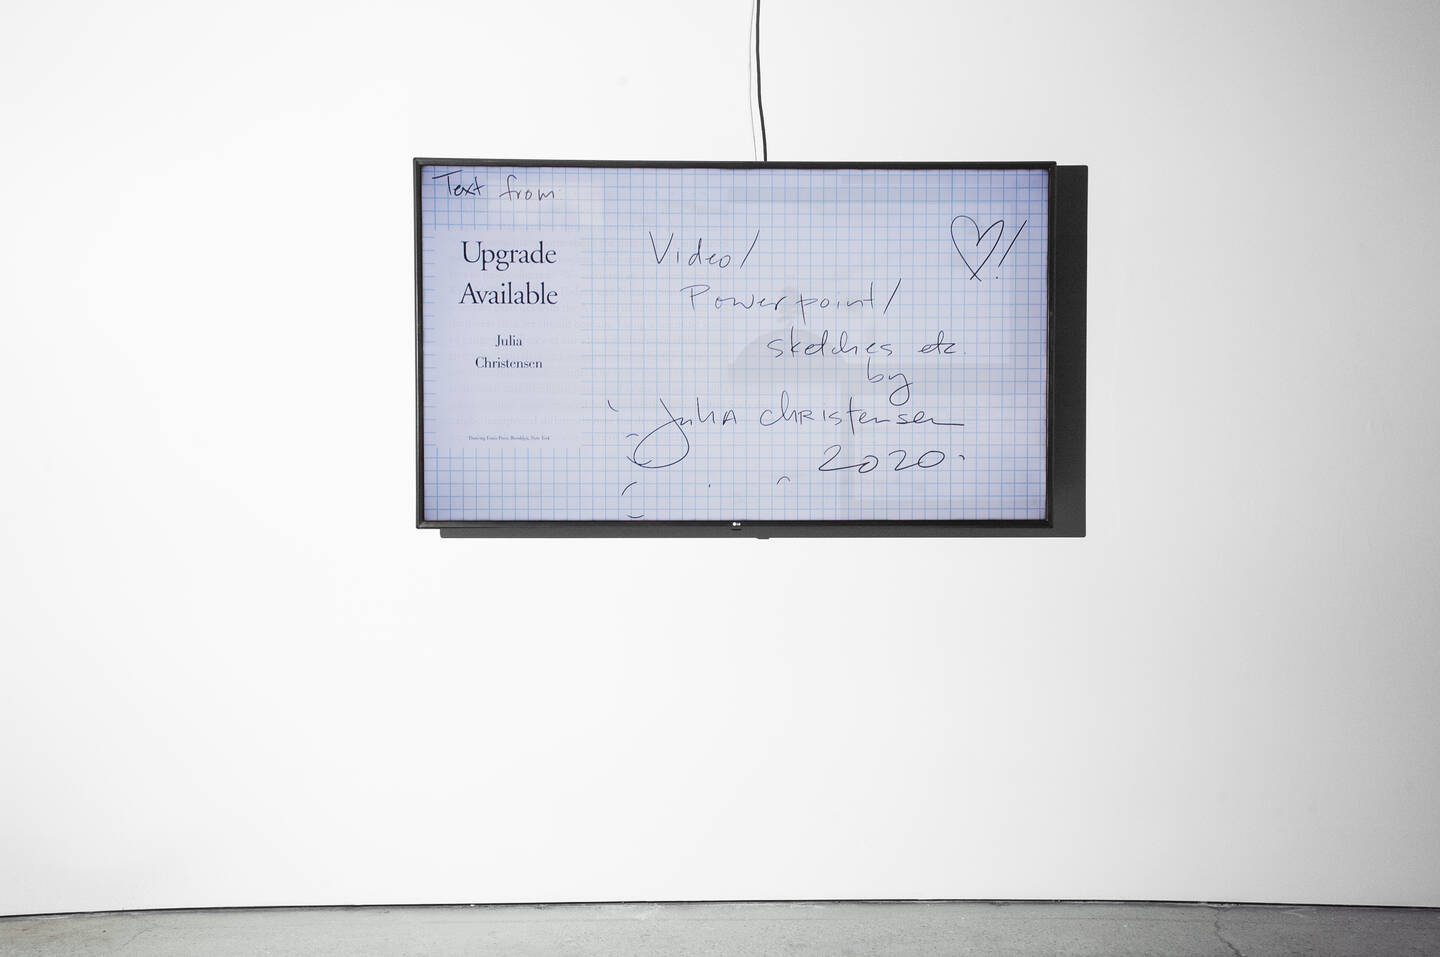 Text from
Upgrade
Available
Julia
Christensen
Dancing Foxes Press, Brooklyn, New York
Video/
Powerpoint/
sketches etc.
by
Julia Christensen
2020.
LG